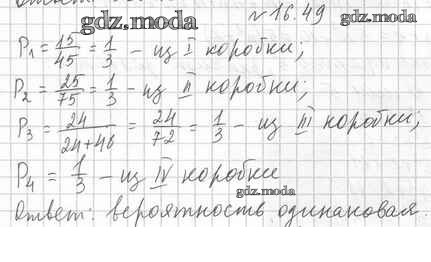 gdz.moda
№16.49 gdz.moda
P₁ = 15/45 = 1/3 – из I коробки;
P₂ = 25/75 = 1/3 – из II коробки;
P₃ = 24/24+48 = 24/72 = 1/3 – из III коробки;
P₄ = 1/3 – из IV коробки
gdz.moda
Ответ: вероятность одинаковая.